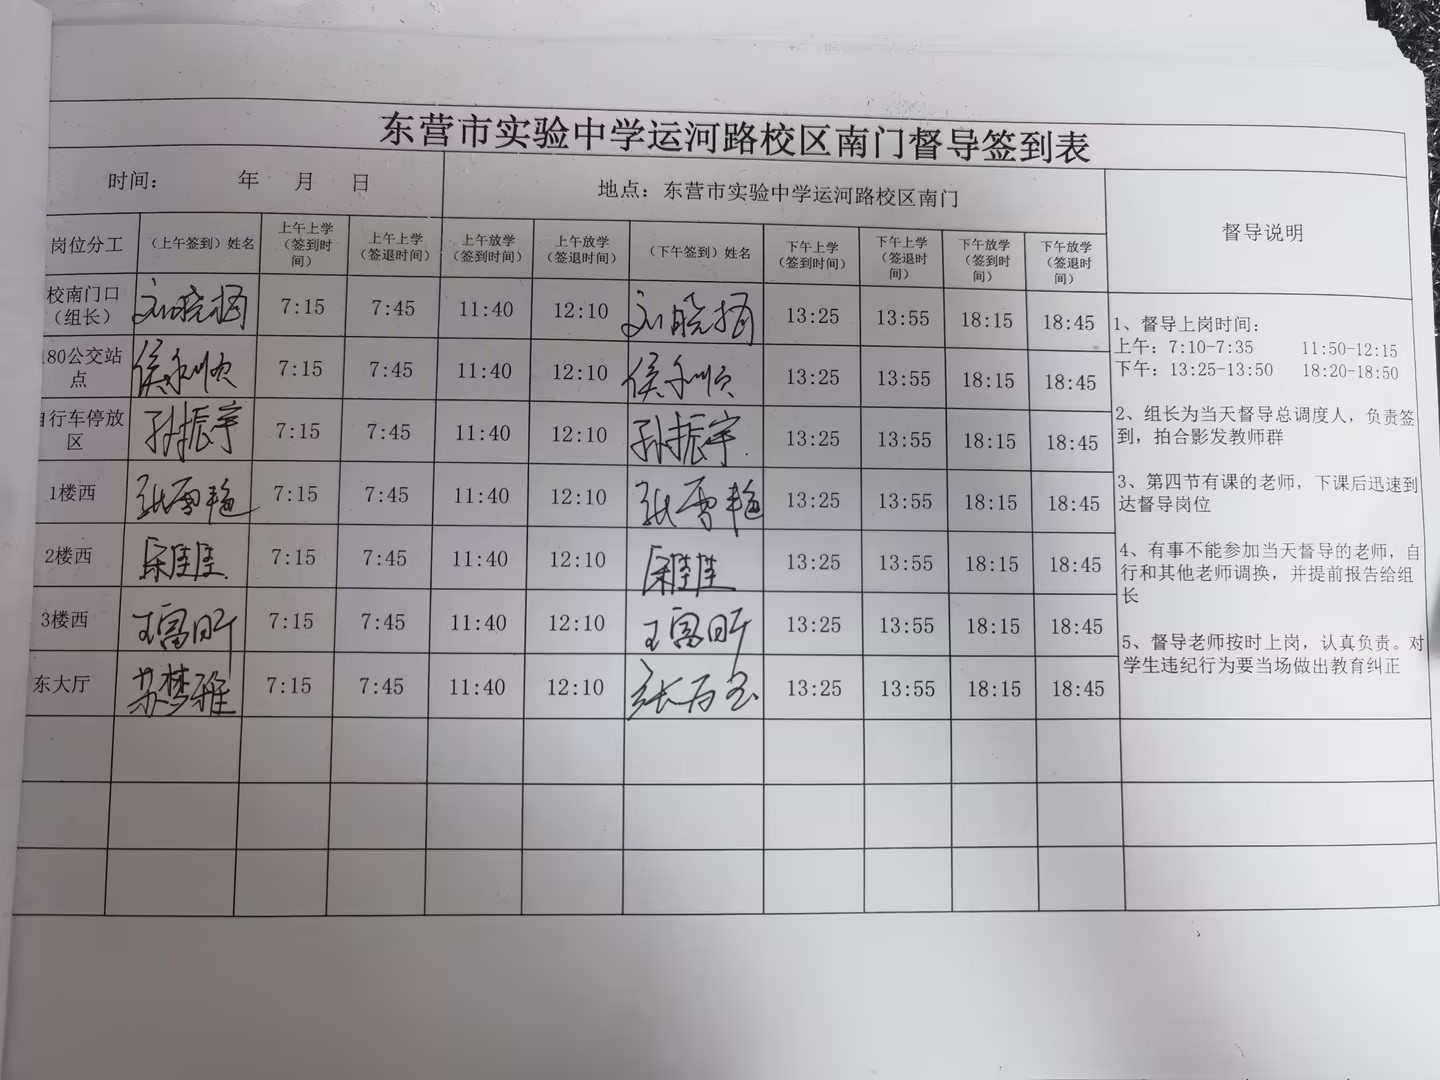 东营市实验中学运河路校区南门督导签到表
时间： 年 月 日 地点：东营市实验中学运河路校区南门 督导说明
岗位分工 （上午签到）姓名 上午上学（签到时间） 上午上学（签退时间） 上午放学（签到时间） 上午放学（签退时间） （下午签到）姓名 下午上学（签到时间） 下午上学（签退时间） 下午放学（签到时间） 下午放学（签退时间）
校南门口（组长） 7:15 7:45 11:40 12:10 13:25 13:55 18:15 18:45
80公交站点 侯永顺 7:15 7:45 11:40 12:10 侯永顺 13:25 13:55 18:15 18:45
自行车停放区 孙振宇 7:15 7:45 11:40 12:10 孙振宇 13:25 13:55 18:15 18:45
1楼西 张雪艳 7:15 7:45 11:40 12:10 张雪艳 13:25 13:55 18:15 18:45
2楼西 7:15 7:45 11:40 12:10 13:25 13:55 18:15 18:45
3楼西 王富昕 7:15 7:45 11:40 12:10 王富昕 13:25 13:55 18:15 18:45
东大厅 苏梦雅 7:15 7:45 11:40 12:10 13:25 13:55 18:15 18:45
1、督导上岗时间：
上午：7:10-7:35 11:50-12:15
下午：13:25-13:50 18:20-18:50
2、组长为当天督导总调度人，负责签
到，拍合影发教师群
3、第四节有课的老师，下课后迅速到
达督导岗位
4、有事不能参加当天督导的老师，自
行和其他老师调换，并提前报告给组
长
5、督导老师按时上岗，认真负责。对
学生违纪行为要当场做出教育纠正